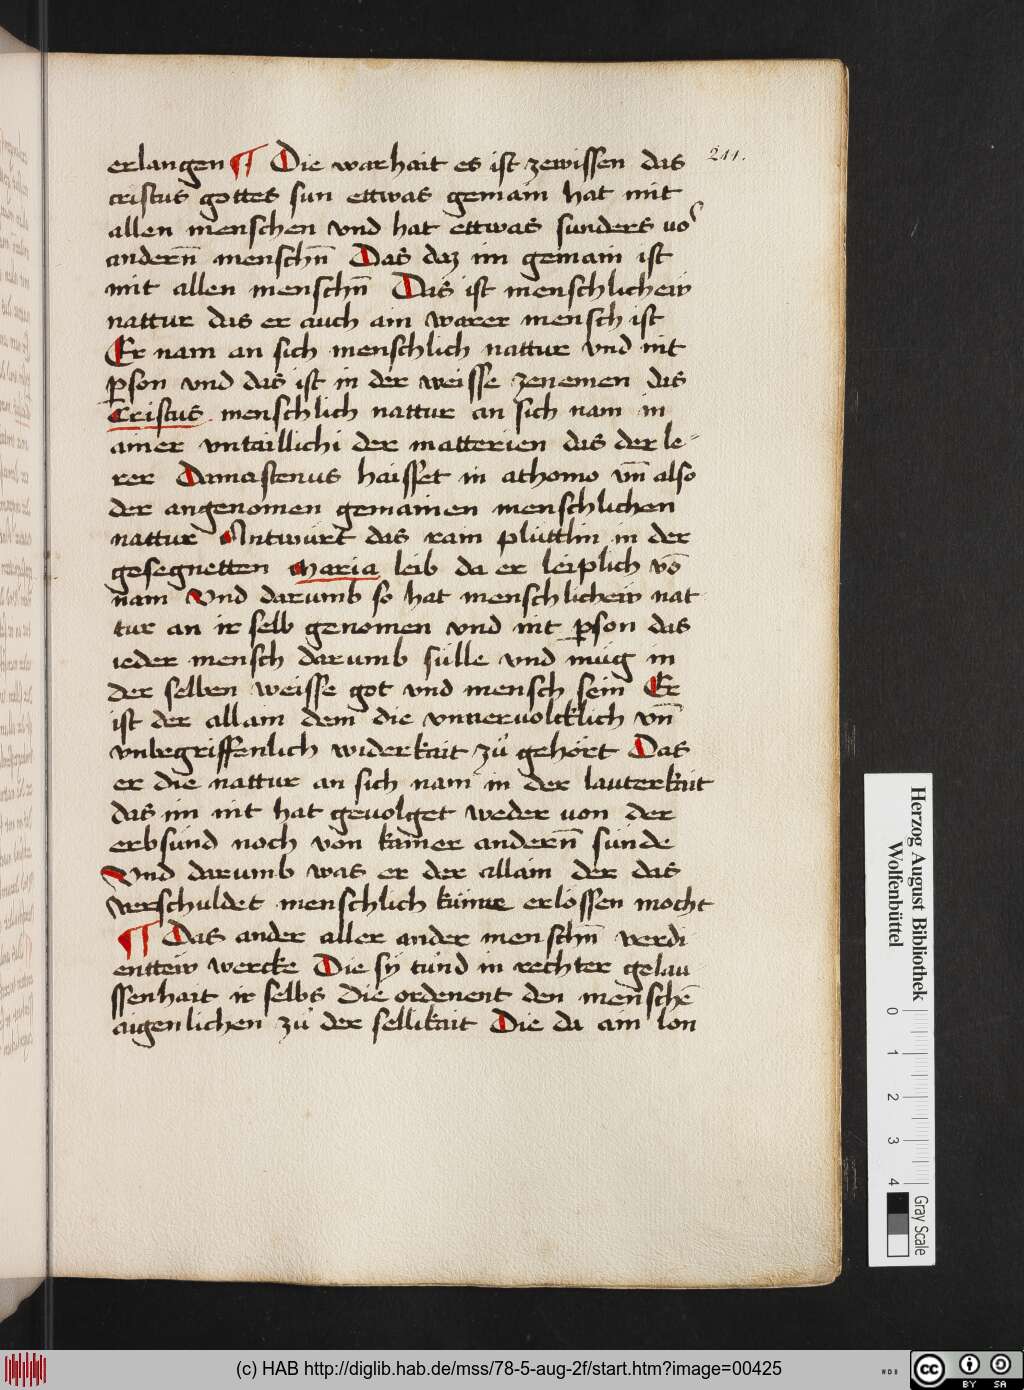 211.
erlangen ¶ Die warhait es ist zewissen das
cristus gottes sun ettwas gemain hat mit
allen menschen vnd hat ettwas sunders uoͬ
andern̄ menschn̄ Das daz im gemain ist
mit allen menschn̄ Das ist menschlicheiv
nattur das er auch ain warer mensch ist
Er nam an sich menschlich nattur vnd nit
ꝑson vnd das ist in der weisse zenemen das
Cristus menschlich nattur an sich nam in
ainer vntaillichi der matterien das der le-
rer Damastenus haisset in athomo vn̄ also
der angenomen gemainen menschlichen
nattur Antwurt das rain plüttlin in der
gesegnetten Maria leib da er leiplich vō
nam Vnd darumb so hat menschlicheiv nat
tur an ir selb genomen vnd nit ꝑson das
ieder mensch darumb sülle vnd müg in
der selben weisse got vnd mensch sein Er
ist der allain dem die vnuervolcklich vn̄
vnbegriffenlich widerkait zů gehört Das
er die nattur an sich nam in der lauterkait
das im nit hat geuolget weder von der
erbsünd noch von kainer andern̄ sünde
Vnd darumb was er der allain der das
verschuldet menschlich künne erlössen mocht
¶ Das ander aller ander menschn̄ verdi
entteiv wercke Die sÿ tünd in rechter gelau
ssenhait ir selbs Die ordenent den menschē
aigenlichen zů der sellikait Die da ain lon
Herzog August Bibliothek
Wolfenbüttel
0 1 2 3 4
Gray Scale
(c) HAB http://diglib.hab.de/mss/78-5-aug-2f/start.htm?image=00425
WDB
cc BY SA